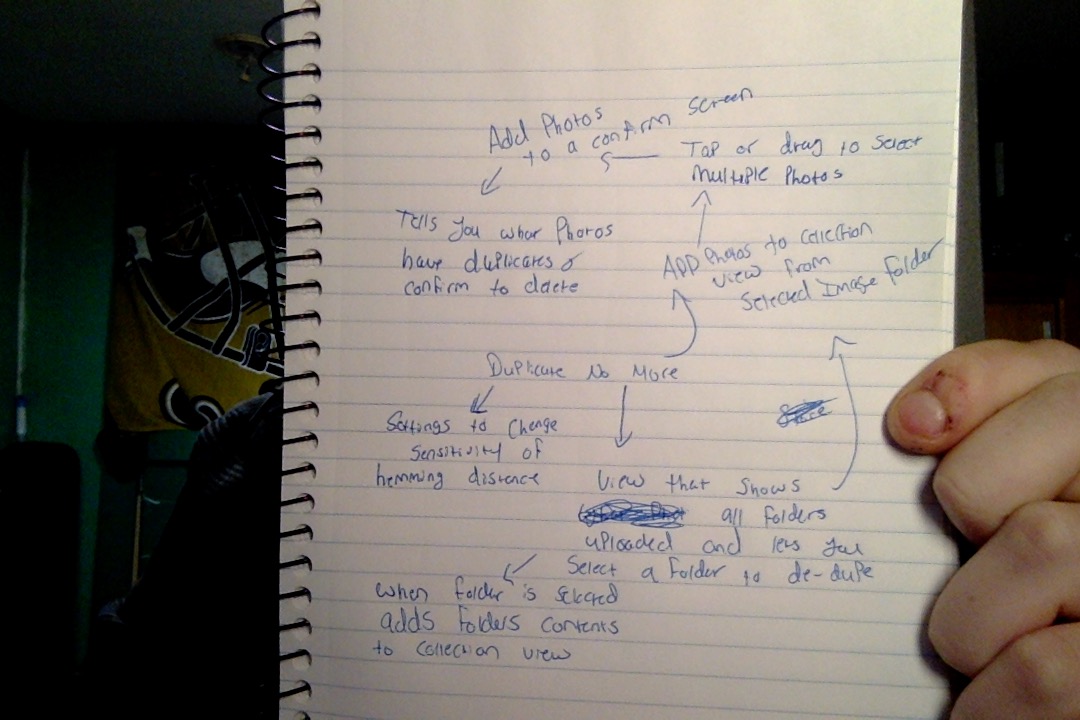 Add Photos
to a confirm screen
Tap or drag to select
multiple Photos
Tells you what Photos
have duplicates &
confirm to delete
ADD Photos to collection
view from
selected Image folder
Duplicate No More
Settings to change
sensitivity of
hemming distence
View that shows
all folders
uploaded and lets you
select a folder to de-dupe
when folder is selected
adds folders contents
to collection view